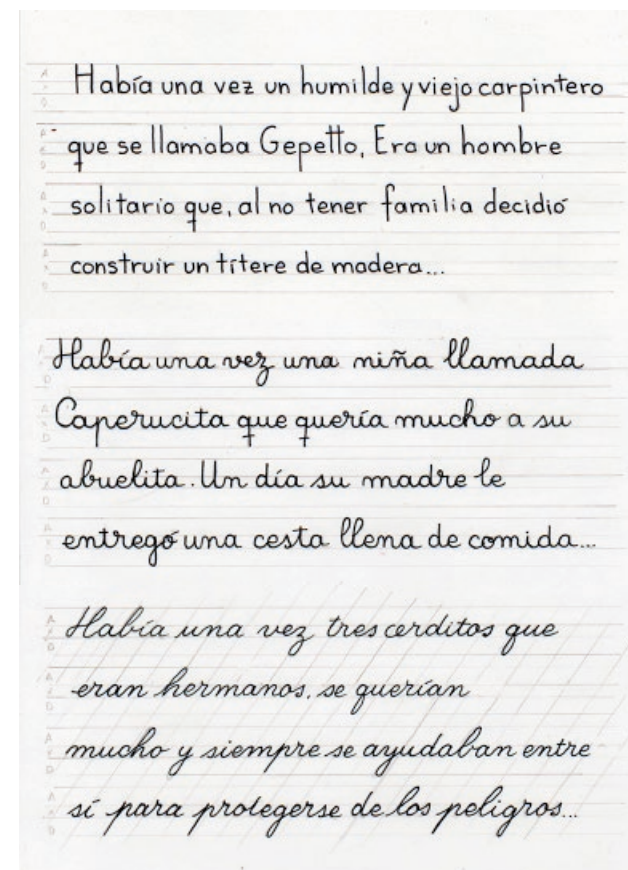 Había una vez un humilde y viejo carpintero
que se llamaba Gepetto. Era un hombre
solitario que, al no tener familia decidió
construir un títere de madera...
Había una vez una niña llamada
Caperucita que quería mucho a su
abuelita. Un día su madre le
entregó una cesta llena de comida...
Había una vez tres cerditos que
eran hermanos, se querían
mucho y siempre se ayudaban entre
sí para protegerse de los peligros...